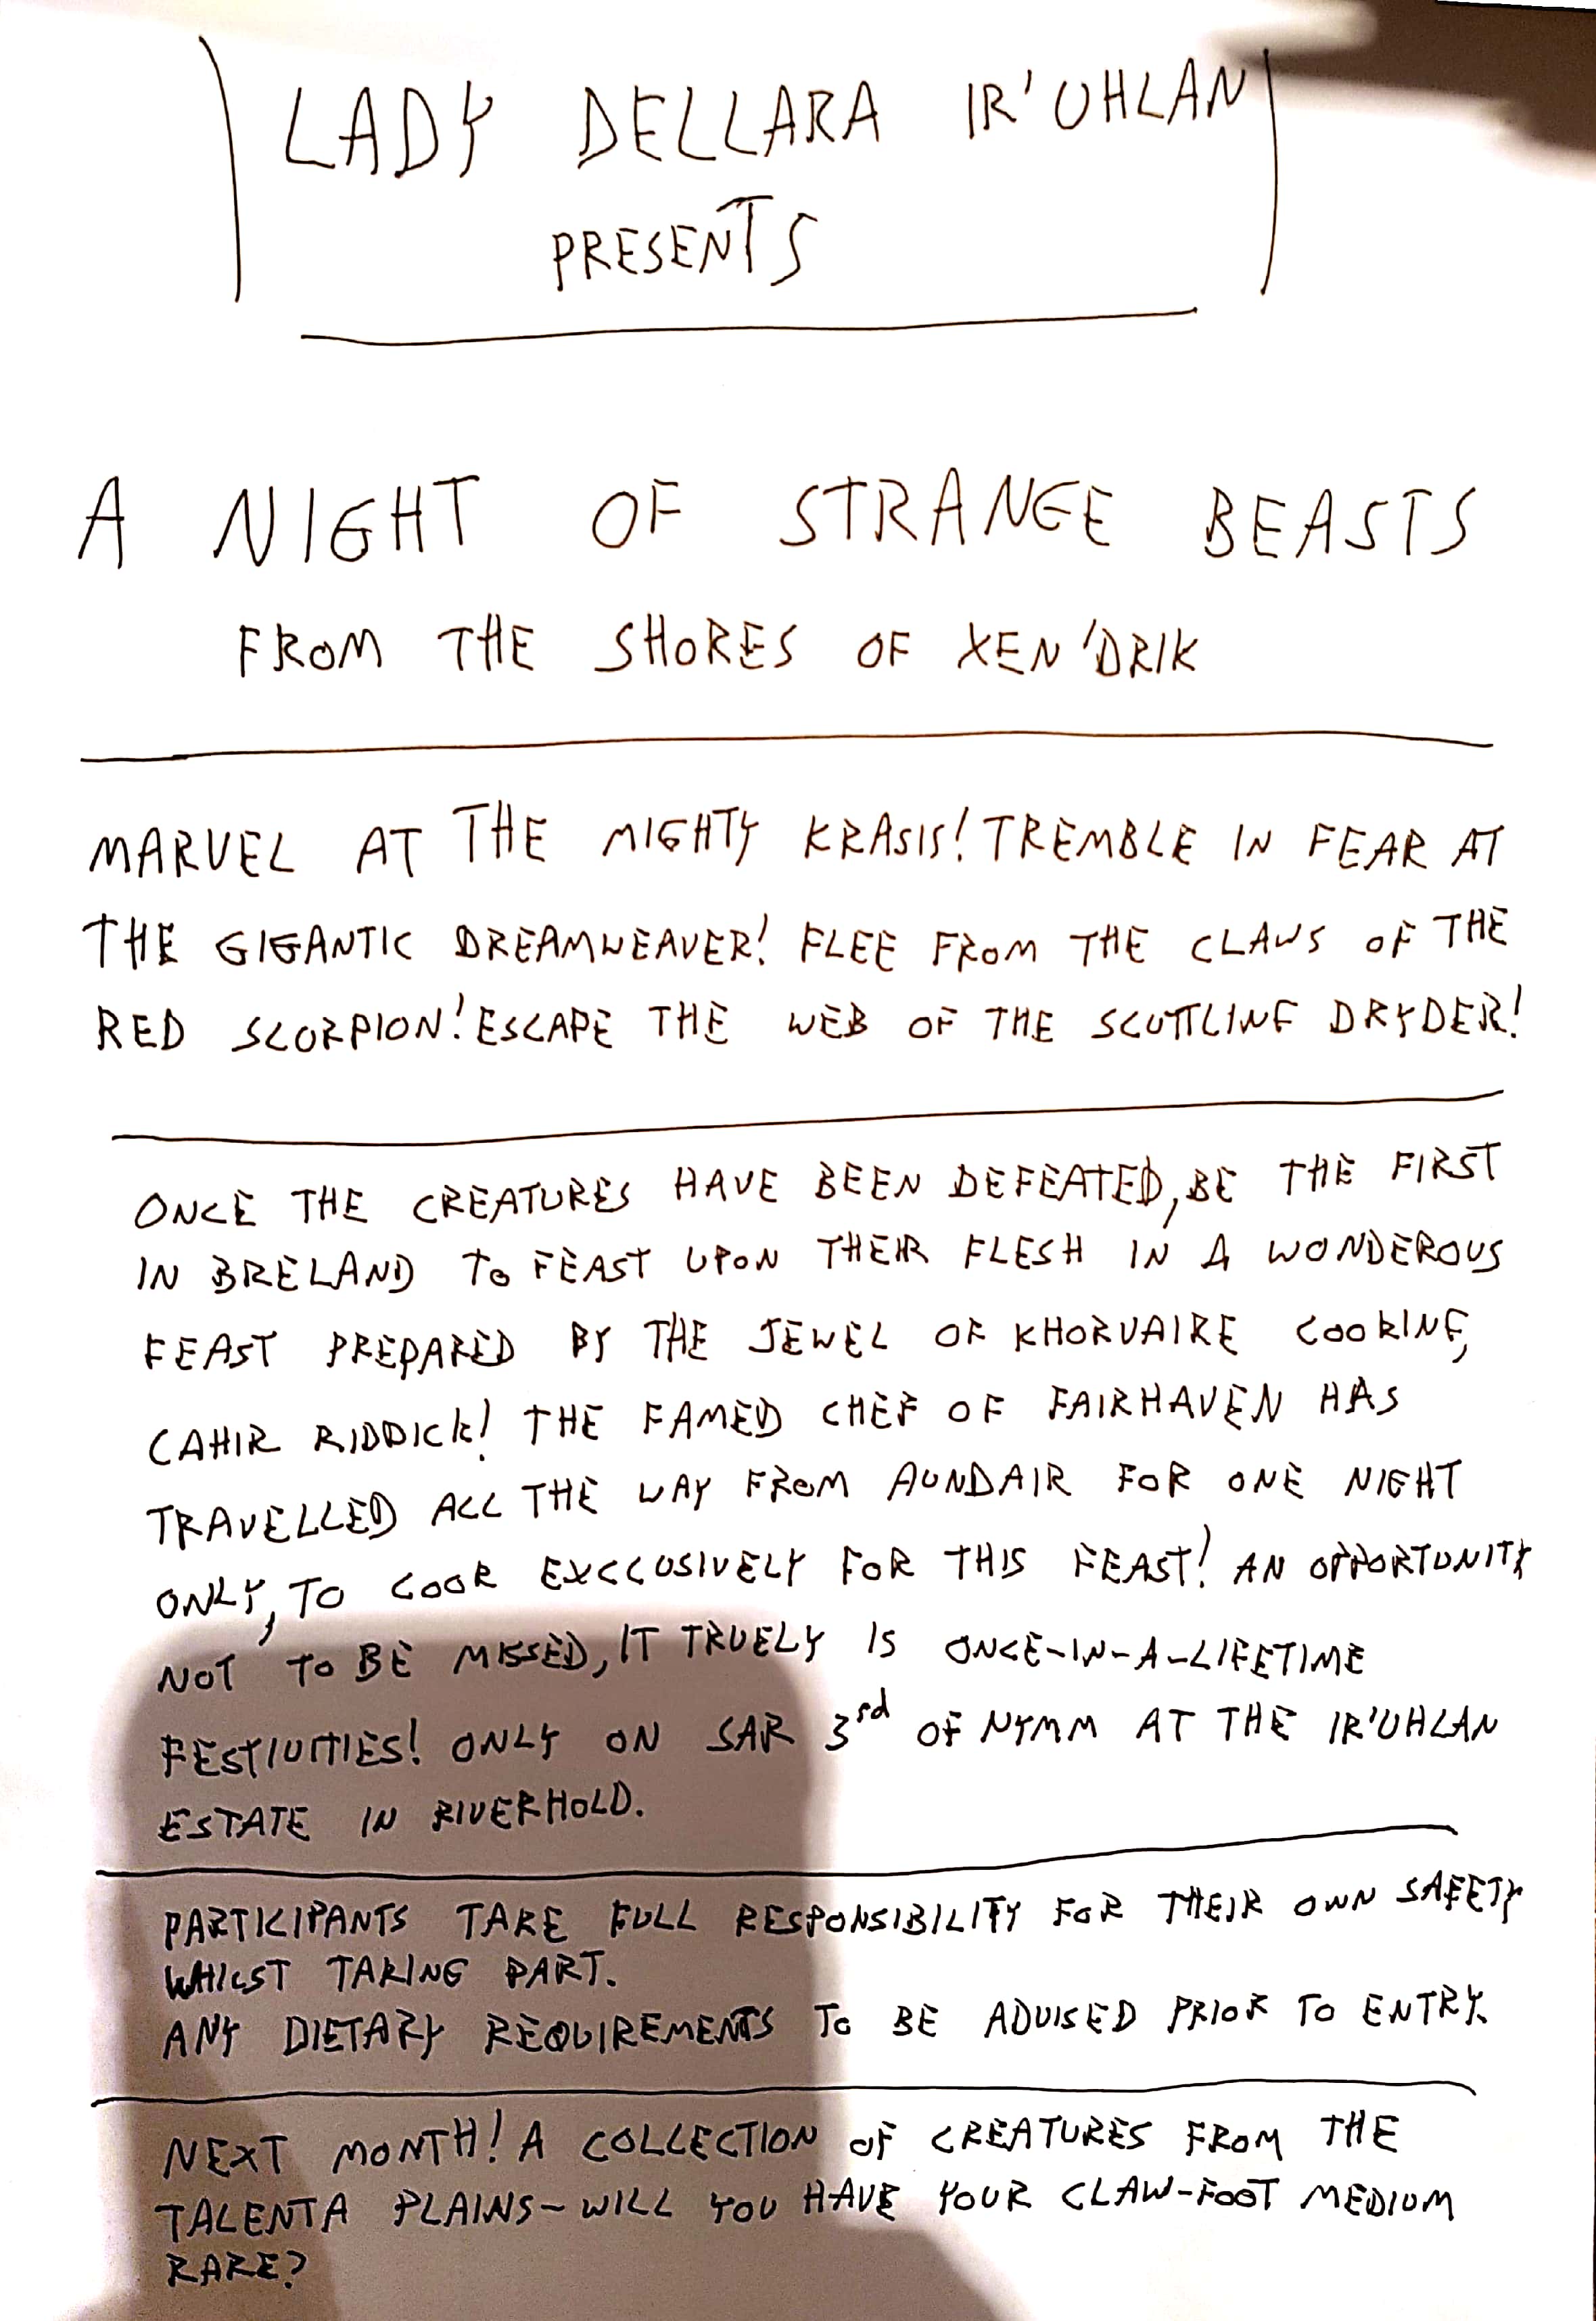 LADY DELLARA IR'UHLAN
PRESENTS
A NIGHT OF STRANGE BEASTS
FROM THE SHORES OF XEN'DRIK
MARVEL AT THE MIGHTY KRASIS! TREMBLE IN FEAR AT
THE GIGANTIC DREAMWEAVER! FLEE FROM THE CLAWS OF THE
RED SCORPION! ESCAPE THE WEB OF THE SCUTTLING DRYDER!
ONCE THE CREATURES HAVE BEEN DEFEATED, BE THE FIRST
IN BRELAND TO FEAST UPON THEIR FLESH IN A WONDEROUS
FEAST PREPARED BY THE JEWEL OF KHORVAIRE COOKING,
CAHIR RIDDICK! THE FAMED CHEF OF FAIRHAVEN HAS
TRAVELLED ALL THE WAY FROM AUNDAIR FOR ONE NIGHT
ONLY, TO COOK EXCLUSIVELY FOR THIS FEAST! AN OPPORTUNITY
NOT TO BE MISSED, IT TRUELY IS ONCE-IN-A-LIFETIME
FESTIVITIES! ONLY ON SAR 3rd OF NYMM AT THE IR'UHLAN
ESTATE IN RIVERHOLD.
PARTICIPANTS TAKE FULL RESPONSIBILITY FOR THEIR OWN SAFETY
WHILST TAKING PART.
ANY DIETARY REQUIREMENTS TO BE ADVISED PRIOR TO ENTRY.
NEXT MONTH! A COLLECTION OF CREATURES FROM THE
TALENTA PLAINS - WILL YOU HAVE YOUR CLAW-FOOT MEDIUM
RARE?